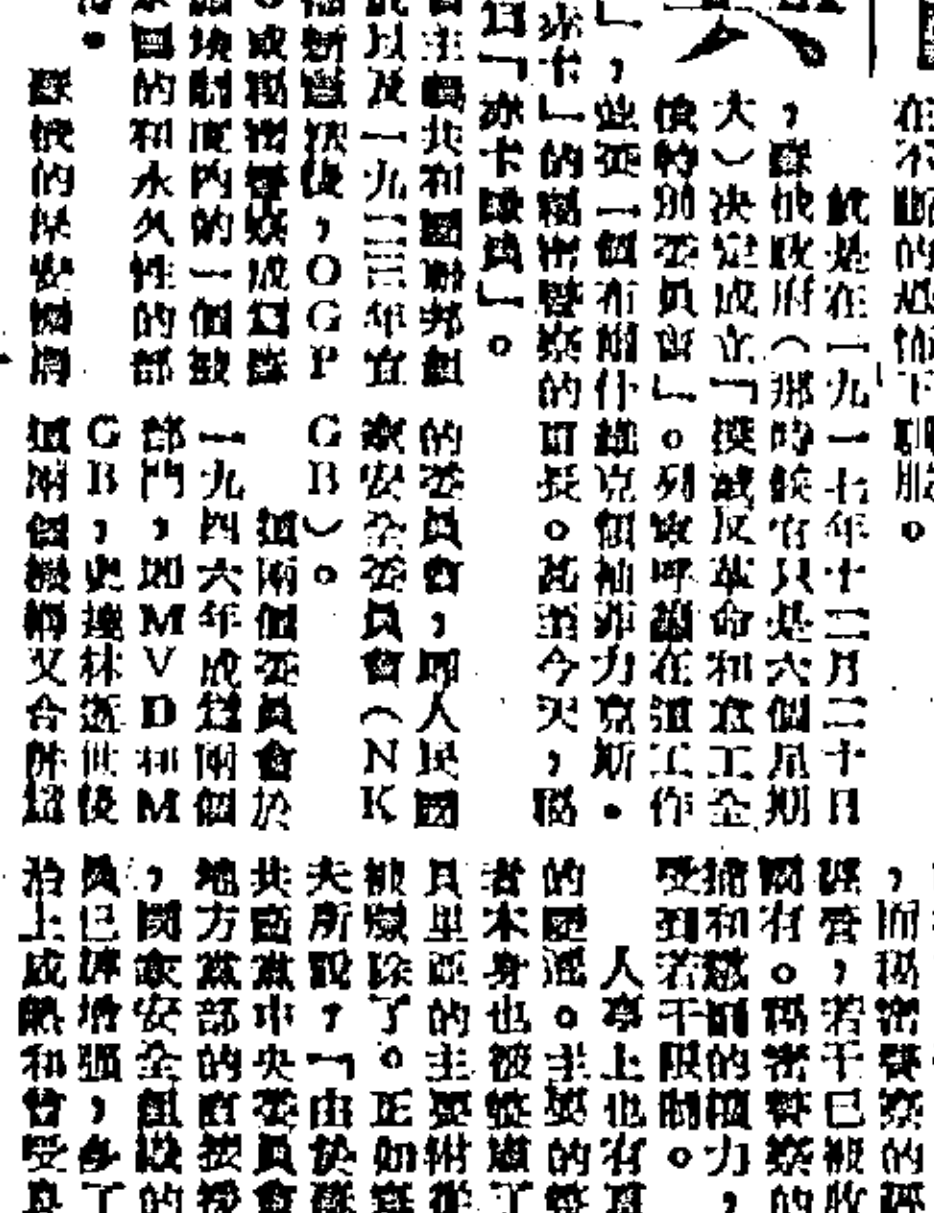 在不斷的恐怖下馴服。
就是在一九一七年十二月二十日
，蘇俄政府（那時候只是六個星期
大）決定成立「撲滅反革命和怠工全
俄特別委員會」。列寧呼籲在這工作
」，並委一個布爾什維克領袖菲力克斯．
赤卡」的秘密警察的首長。甚至今天，秘
「赤卡職員」。
主義共和國聯邦組
以及一九二三年宣
新憲法後，OGP
。或秘密警察成為蘇
塊制度內的一個被
國的和永久性的部
．
蘇俄的保安機關
的委員會，即人民國
家安全委員會（NK
GB）。
這兩個委員會於
一九四六年成為兩個
部門，即MVD和M
GB，史達林逝世後
這兩個機構又合併為
，而秘密警察的
經營，若干已被收
關有。秘密警察的
捕和懲罰的權力，
受到若干限制。
人事上也有其
的變遷。主要的
者本身也被整肅了
貝里亞的主要附從
被清除了。正如
夫所說，「由於蘇
共產黨中央委員會
地方黨部的直接
，國家安全組織的
員已經增強，多了
治上成熟和曾受良